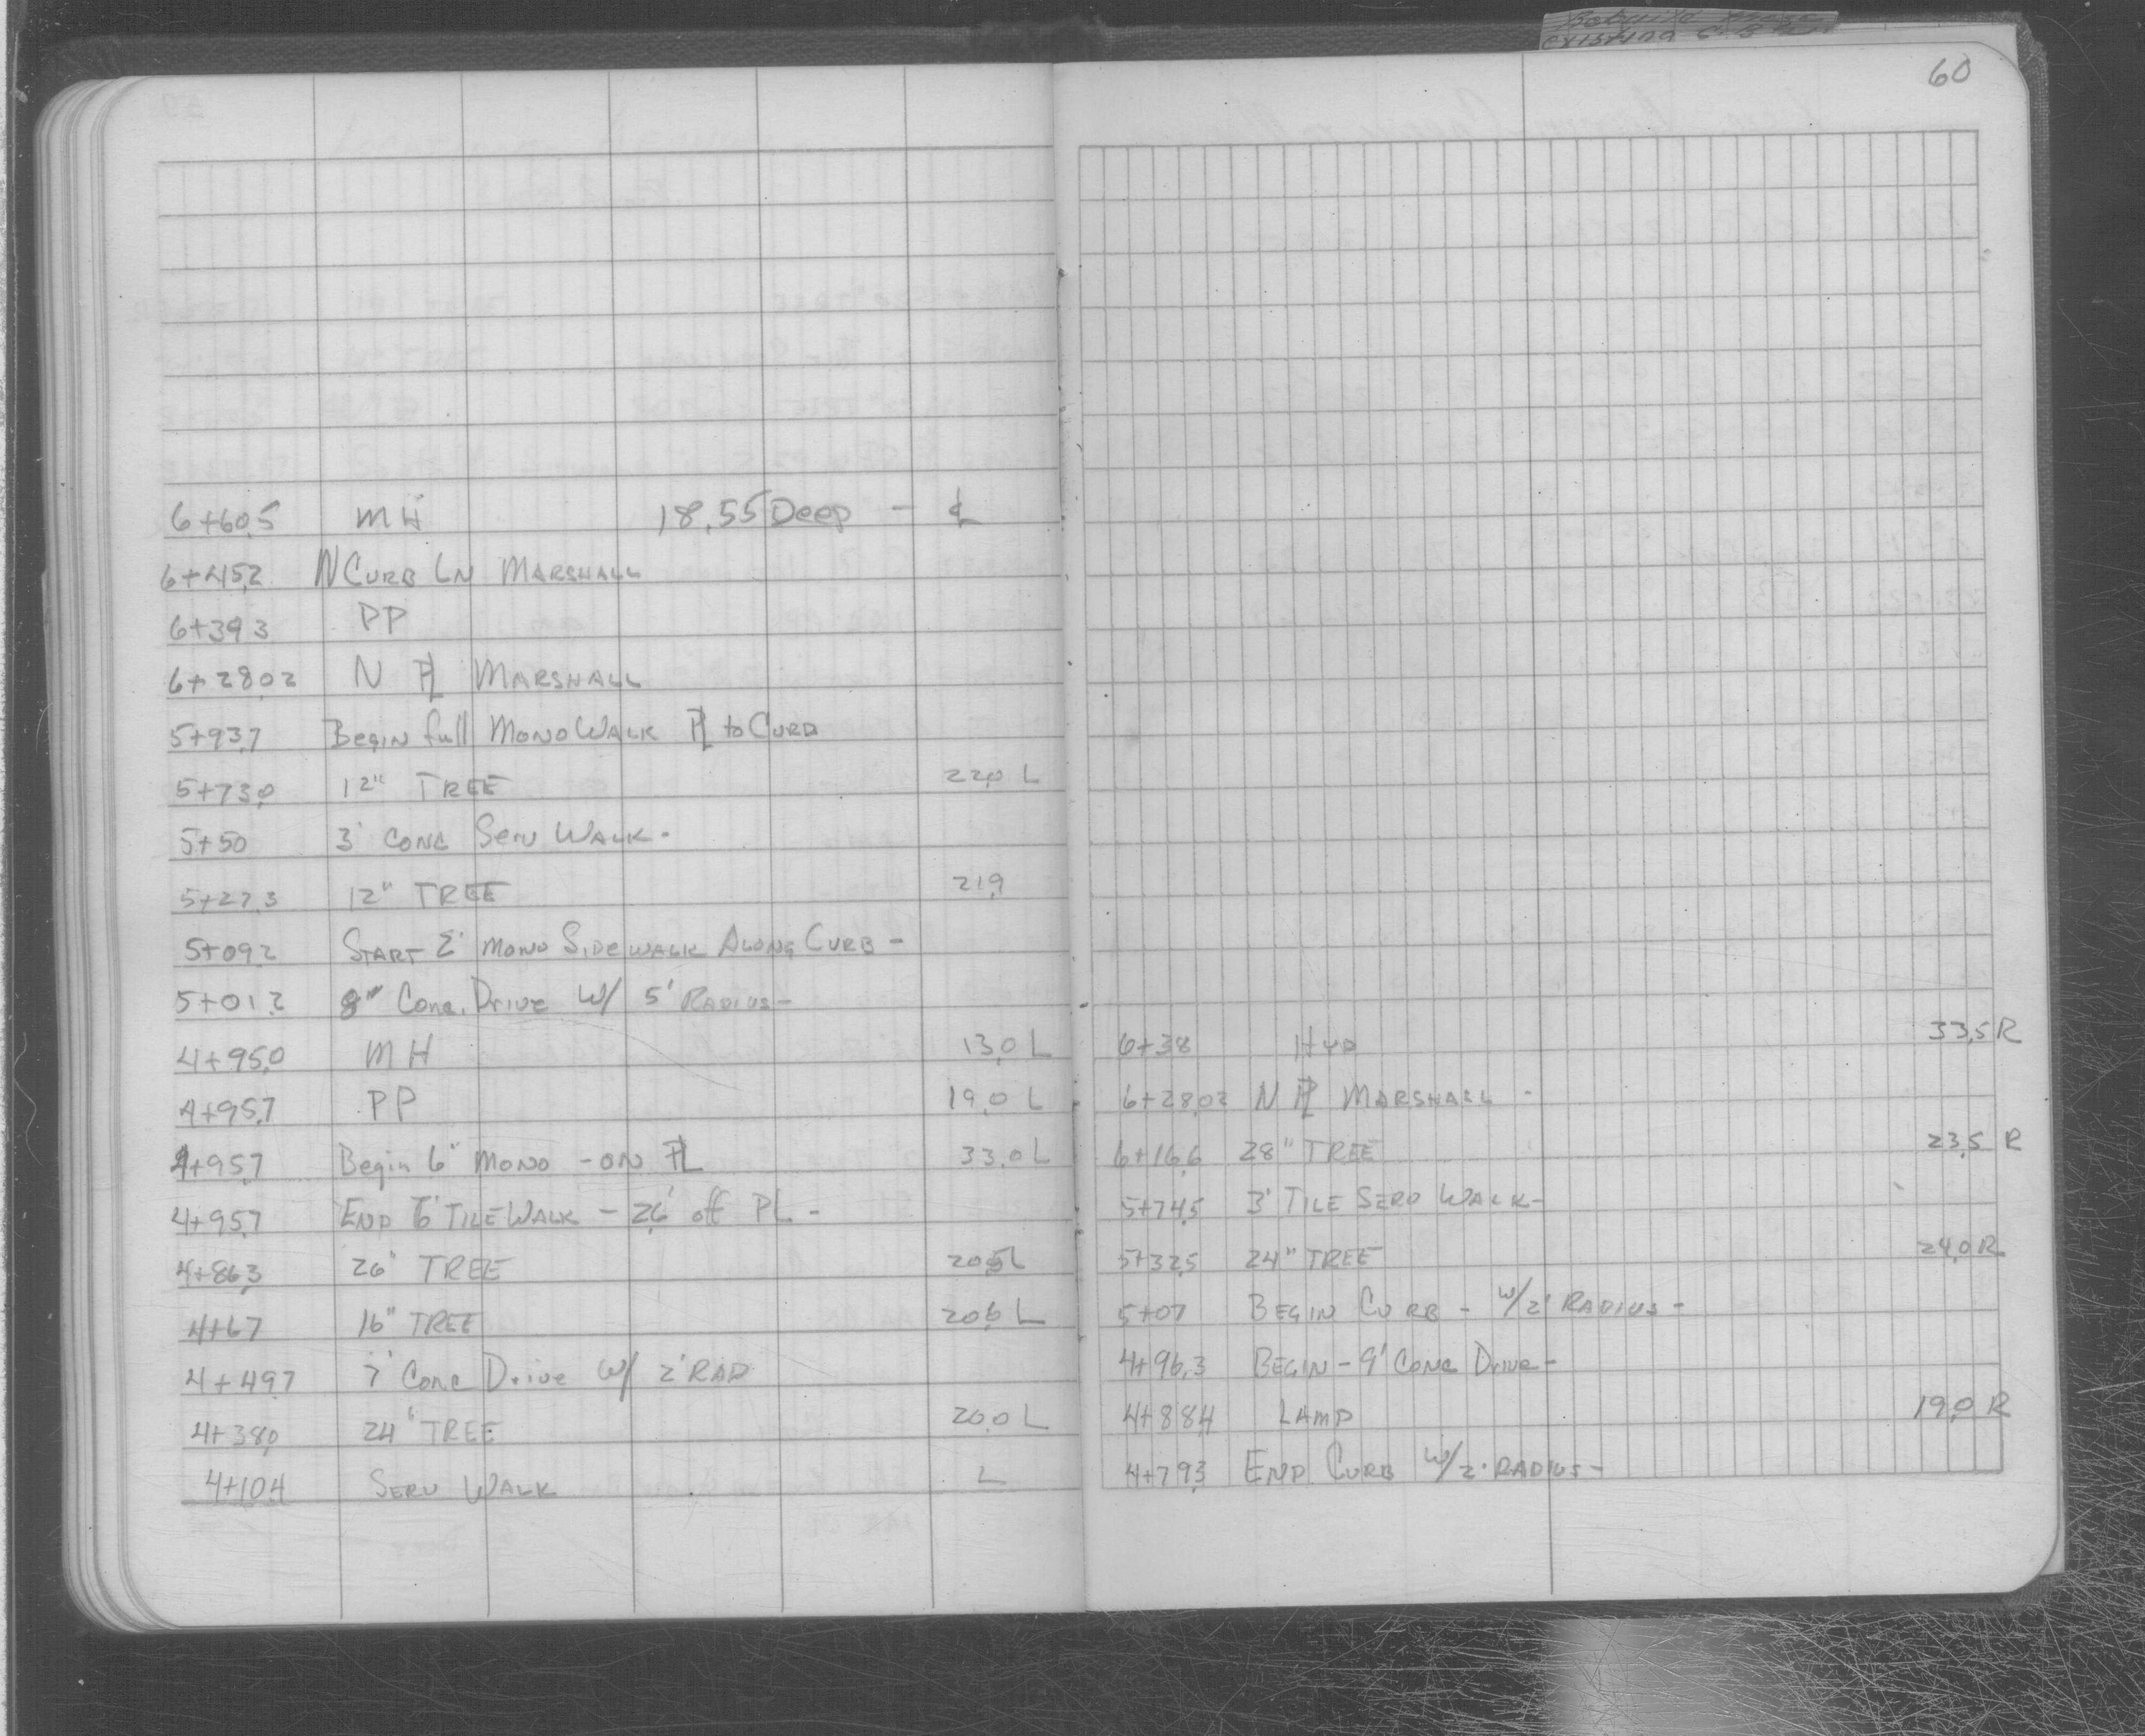 60
6+60.5 MH 18.55 Deep - ℄
6+45.2 N CURB LN MARSHALL
6+39.3 PP
6+28.02 N PL MARSHALL
5+93.7 Begin full MONO WALK PL to CURB
5+73.0 12" TREE 22.0 L
5+50 3' CONC SERV WALK -
5+27.3 12" TREE 21.9
5+09.2 START 2' MONO SIDEWALK ALONG CURB -
5+01.2 8" Conc. Drive W/ 5' RADIUS -
4+95.0 MH 13.0 L
4+95.7 PP 19.0 L
4+95.7 Begin 6' MONO - ON PL 33.0 L
4+95.7 END 6' TILE WALK - 2.6' off PL -
4+86.3 26" TREE 20.5 L
4+67 16" TREE 20.6 L
4+49.7 7' Conc Drive W/ 2' RAD
4+38.0 24" TREE 20.0 L
4+10.4 SERV WALK L
6+38 HYD 33.5 R
6+28.02 N PL MARSHALL -
6+16.6 28" TREE 23.5 R
5+74.5 3' TILE SERV WALK -
5+32.5 24" TREE 24.0 R
5+07 BEGIN CURB - W/ 2' RADIUS -
4+96.3 BEGIN - 9' CONC DRIVE -
4+88.4 LAMP 19.0 R
4+79.3 END CURB W/ 2' RADIUS -